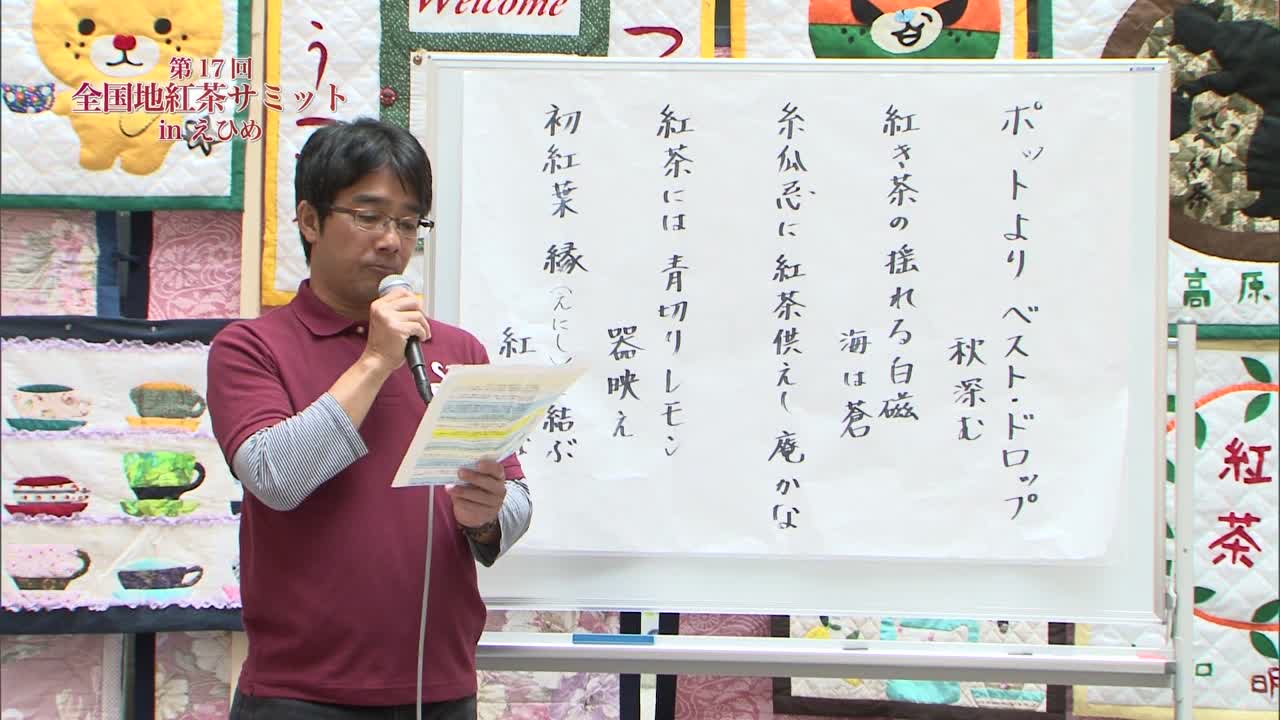 第17回
全国地紅茶サミット
in えひめ
Welcome
う
つ
ポットより ベスト・ドロップ
秋深む
紅き茶の 揺れる白磁
海は蒼
糸瓜忌に 紅茶供えし 庵かな
紅茶には 青切りレモン
器映え
初紅葉 縁(えにし) 結ぶ
紅
高原
紅茶
口
明